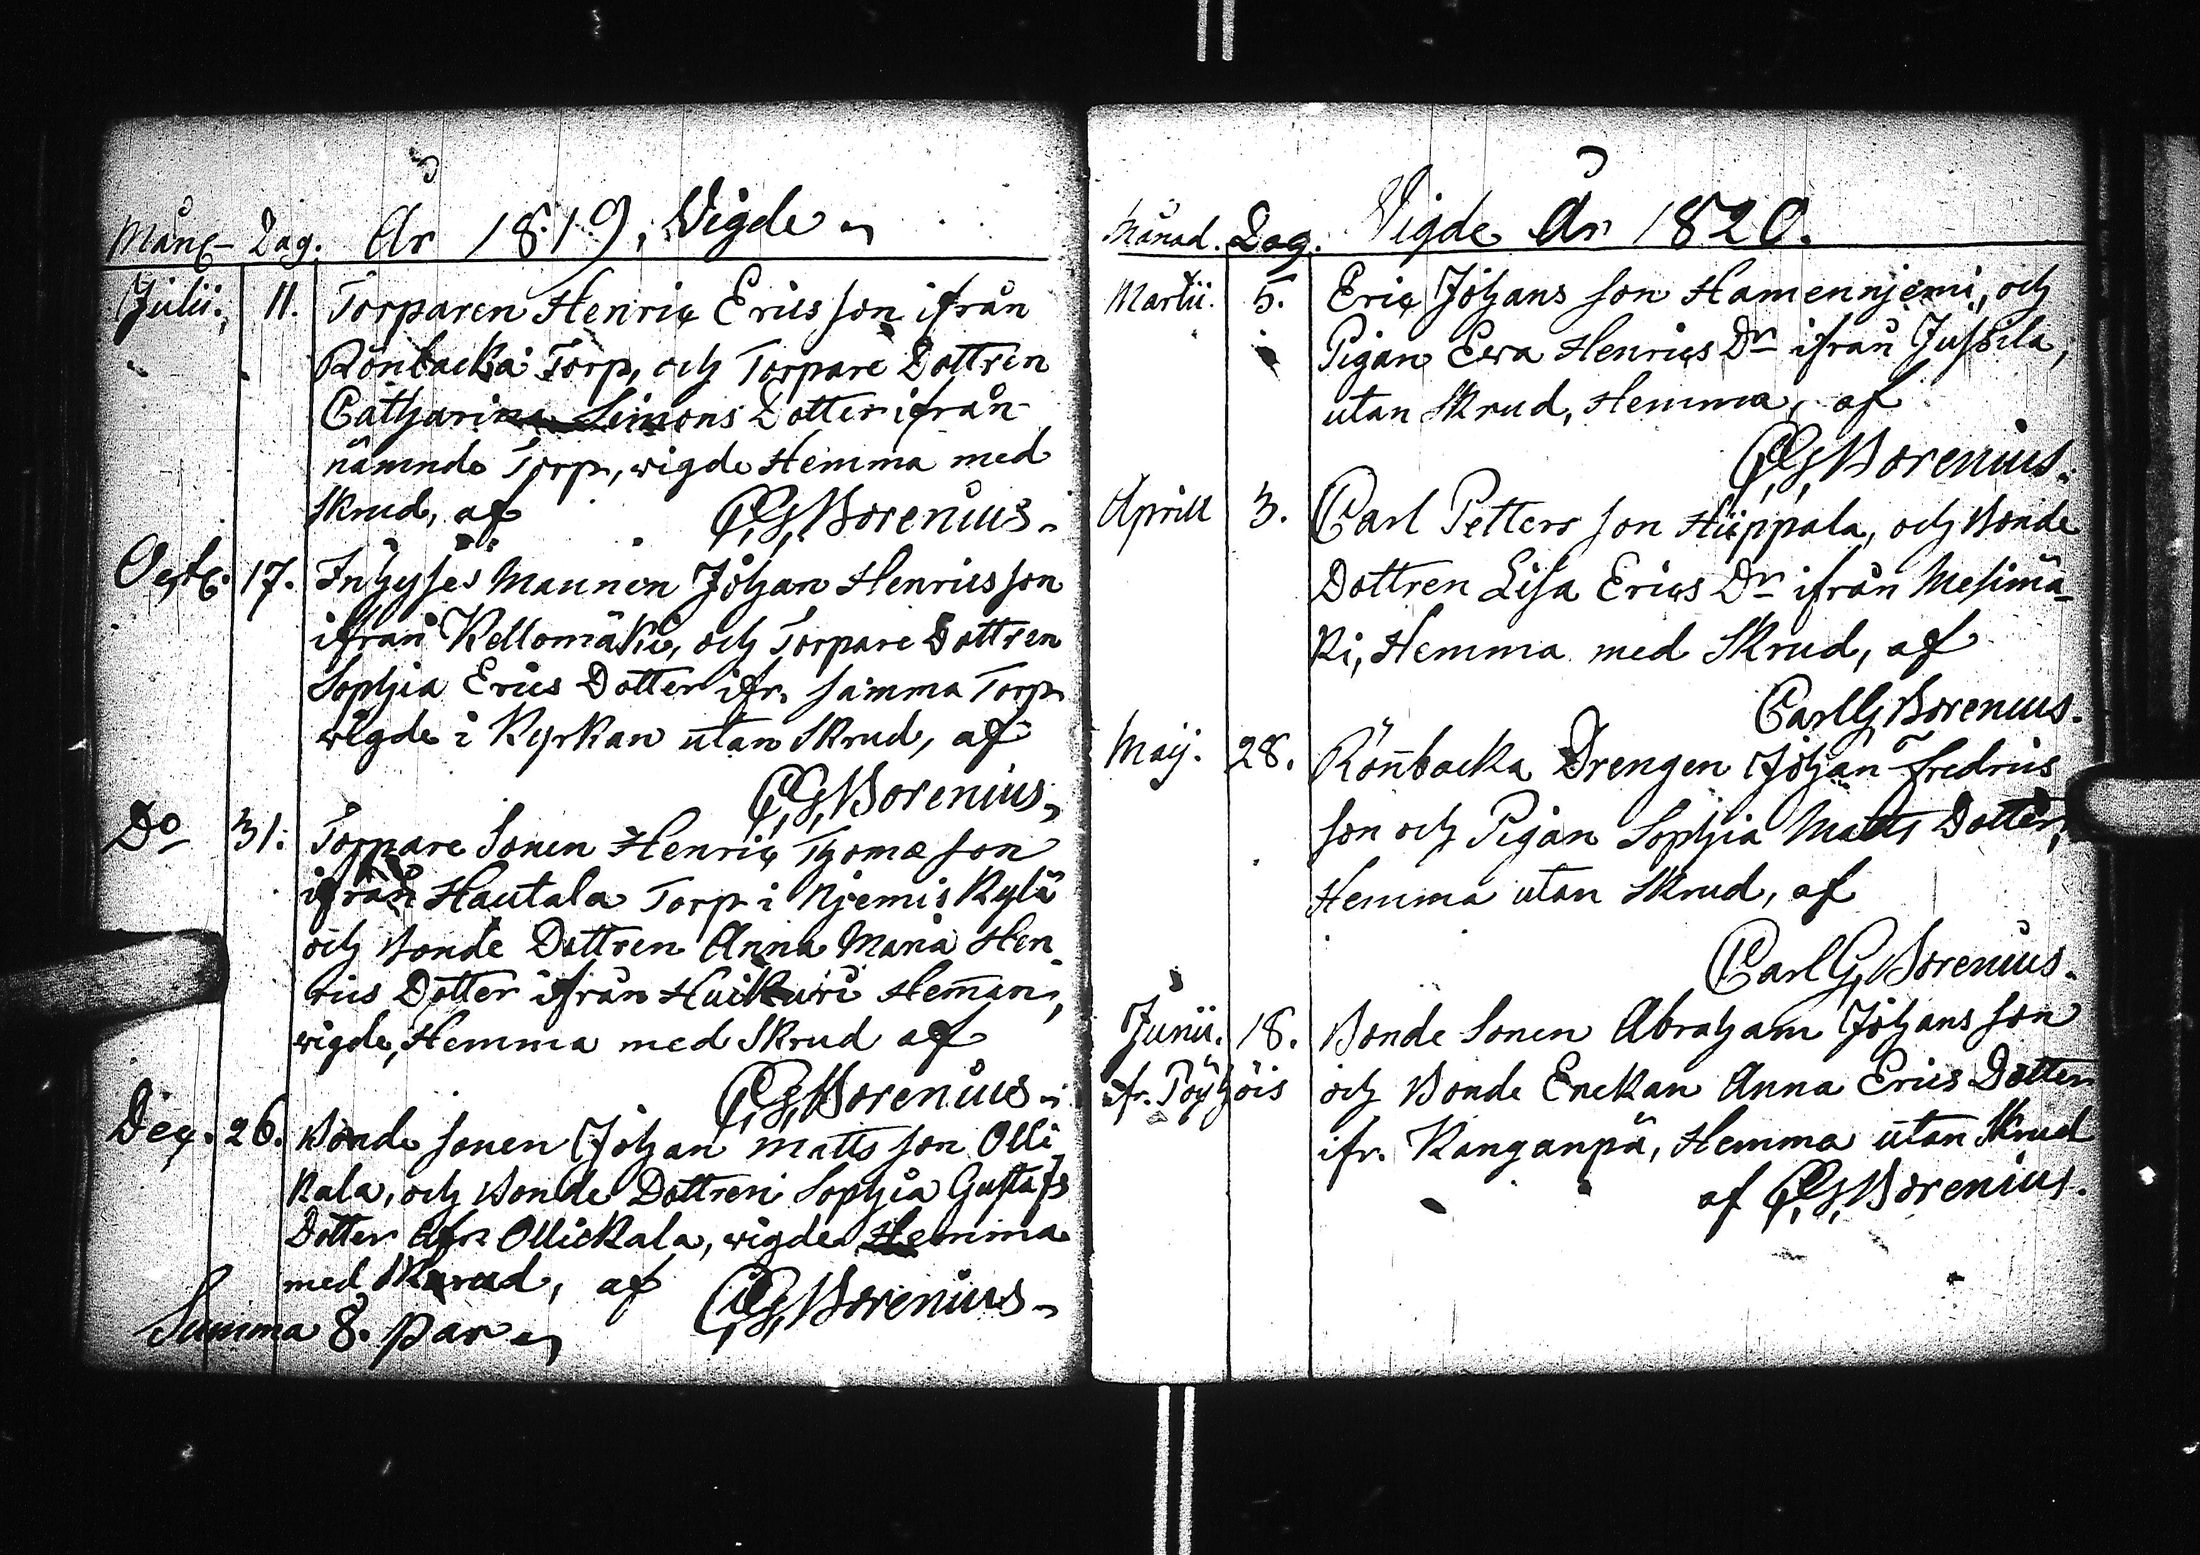 Månd Dag. År 1819, Vigde
Julii. 11. Torparen Henric Ericsson ifrån
Rönbacka Torp, och Torpare Dottren
Catharina Simons Dotter ifrån
nämnde Torp, wigde Hemma med
Skrud, af C,G,Borenius.
Octb. 17. Inhyses Mannen Johan Henricsson
ifrån Kellomäki, och Torpare Dottren
Sophia Erics Dotter ifr. samma Torp
wigde i Kyrkan utan Skrud, af
C,G,Borenius.
Do 31. Torpare Sonen Henric Thomæ son
ifrån Hautala Torp i Njemis Kylä
och Bonde Dottren Anna Maria Hen
rics Dotter ifrån Huikuri Heman,
wigde, Hemma med Skrud af
C,G,Borenius.
Dec. 26. Bonde sonen Johan Matts son Olli
kala, och Bonde Dottren Sophia Gustafs
Dotter ifr. Ollickala, wigde Hemma
med Skrud, af C,G,Borenius.
Summa 8. par
Månad. Dag. Vigde År 1820.
Martii. 5. Eric Johans son Hamennjemi, och
Pigan Ewa Henrics Dr ifrån Jussila,
utan Skrud, Hemma, af
C,G,Borenius.
Aprill 3. Carl Petters son Hüppala, och Bonde
Dottren Lisa Erics Dr ifrån Mesimä-
ki, Hemma med Skrud, af
Carl G, Borenius.
Maij. 28. Rönbacka Drengen Johan Fredrics
son och Pigan Sophia Matts Dotter,
Hemma utan Skrud, af
Carl G, Borenius.
Junii. 18. Bonde Sonen Abraham Johans son
ifr. Pöyhöis och Bonde Enckan Anna Erics Dotter
ifr. Kanganpä, Hemma utan Skrud
af C,G,Borenius.